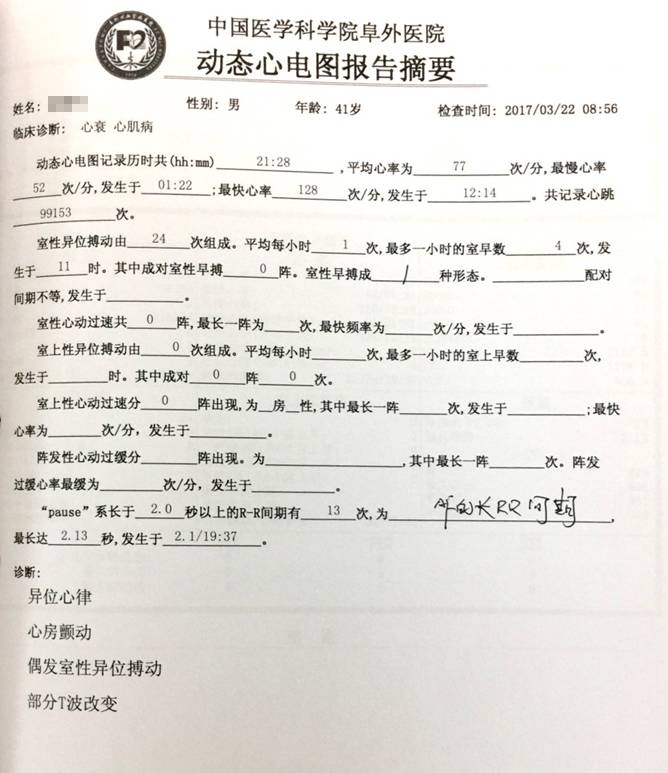 中国医学科学院阜外医院
动态心电图报告摘要
姓名: 性别: 男 年龄: 41岁 检查时间: 2017/03/22 08:56
临床诊断: 心衰 心肌病
动态心电图记录历时共(hh:mm) 21:28 ,平均心率为 77 次/分,最慢心率
52 次/分,发生于 01:22 ;最快心率 128 次/分,发生于 12:14 。共记录心跳
99153 次。
室性异位搏动由 24 次组成。平均每小时 1 次,最多一小时的室早数 4 次,发
生于 11 时。其中成对室性早搏 0 阵。室性早搏成 / 种形态。 配对
间期不等,发生于 。
室性心动过速共 0 阵,最长一阵为 次,最快频率为 次/分,发生于 。
室上性异位搏动由 0 次组成。平均每小时 次,最多一小时的室上早数 次,
发生于 时。其中成对 0 阵 0 次。
室上性心动过速分 0 阵出现,为 房 性,其中最长一阵 次,发生于 ;最快
心率为 次/分,发生于 。
阵发性心动过缓分 阵出现。为 ,其中最长一阵 次。阵发
过缓心率最缓为 次/分,发生于 。
“pause”系长于 2.0 秒以上的R-R间期有 13 次,为 的长RR间期,
最长达 2.13 秒,发生于 2.1/19:37 。
诊断:
异位心律
心房颤动
偶发室性异位搏动
部分T波改变